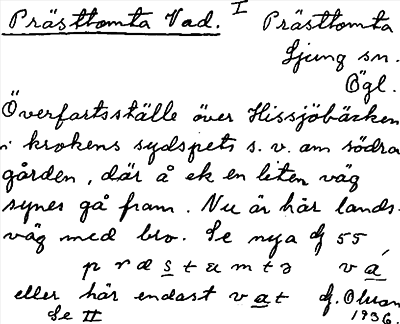 Prästtomta Vad. I Prästtomta
Ljung sn.
Ögl.
Överfartsställe över Hissjöbäcken
i krokens sydspets s. v. om södra
gården, där å ek en liten väg
synes gå fram. Nu är här lands-
väg med bro. Se nya ɠ 55
præstamtə va
eller här endast vat ɠ. Olsson
Se II 1936.